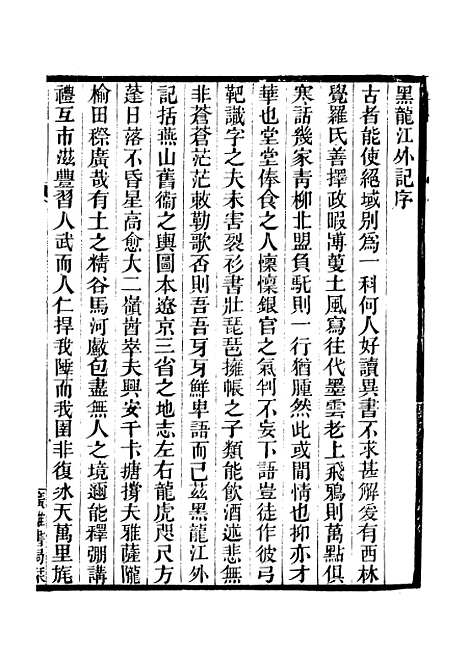 黑龍江外記序
古者能使絕域別爲一科何人好讀異書不求甚解爰有西林
覺羅氏善擇政暇溥蔓土風寫往代墨雲老上飛鴉則萬點俱
寒話幾家靑柳北盟負馱則一行猶腫然此或閒情也抑亦才
華也堂堂俸食之人懍懍銀官之氣判不妄下語豈徒作彼弓
靶識字之夫未害裂衫書壯琵琶擁帳之子類能飮酒述悲無
非蒼蒼茫茫敕勒歌否則吾吾牙牙鮮卑語而已茲黑龍江外
記括燕山舊衞之輿圖本遼京三省之地志左右龍虎咫尺方
蓬日落不昏星高愈大二嶺崷崒夫興安千卡搪撐夫雅薩隴
榆田稌廣哉有土之精谷馬河巖包盡無人之境邇能釋弸講
禮互市滋豐習人武而人仁捍我陲而我圉非復冰天萬里旄
廣雅書局栞